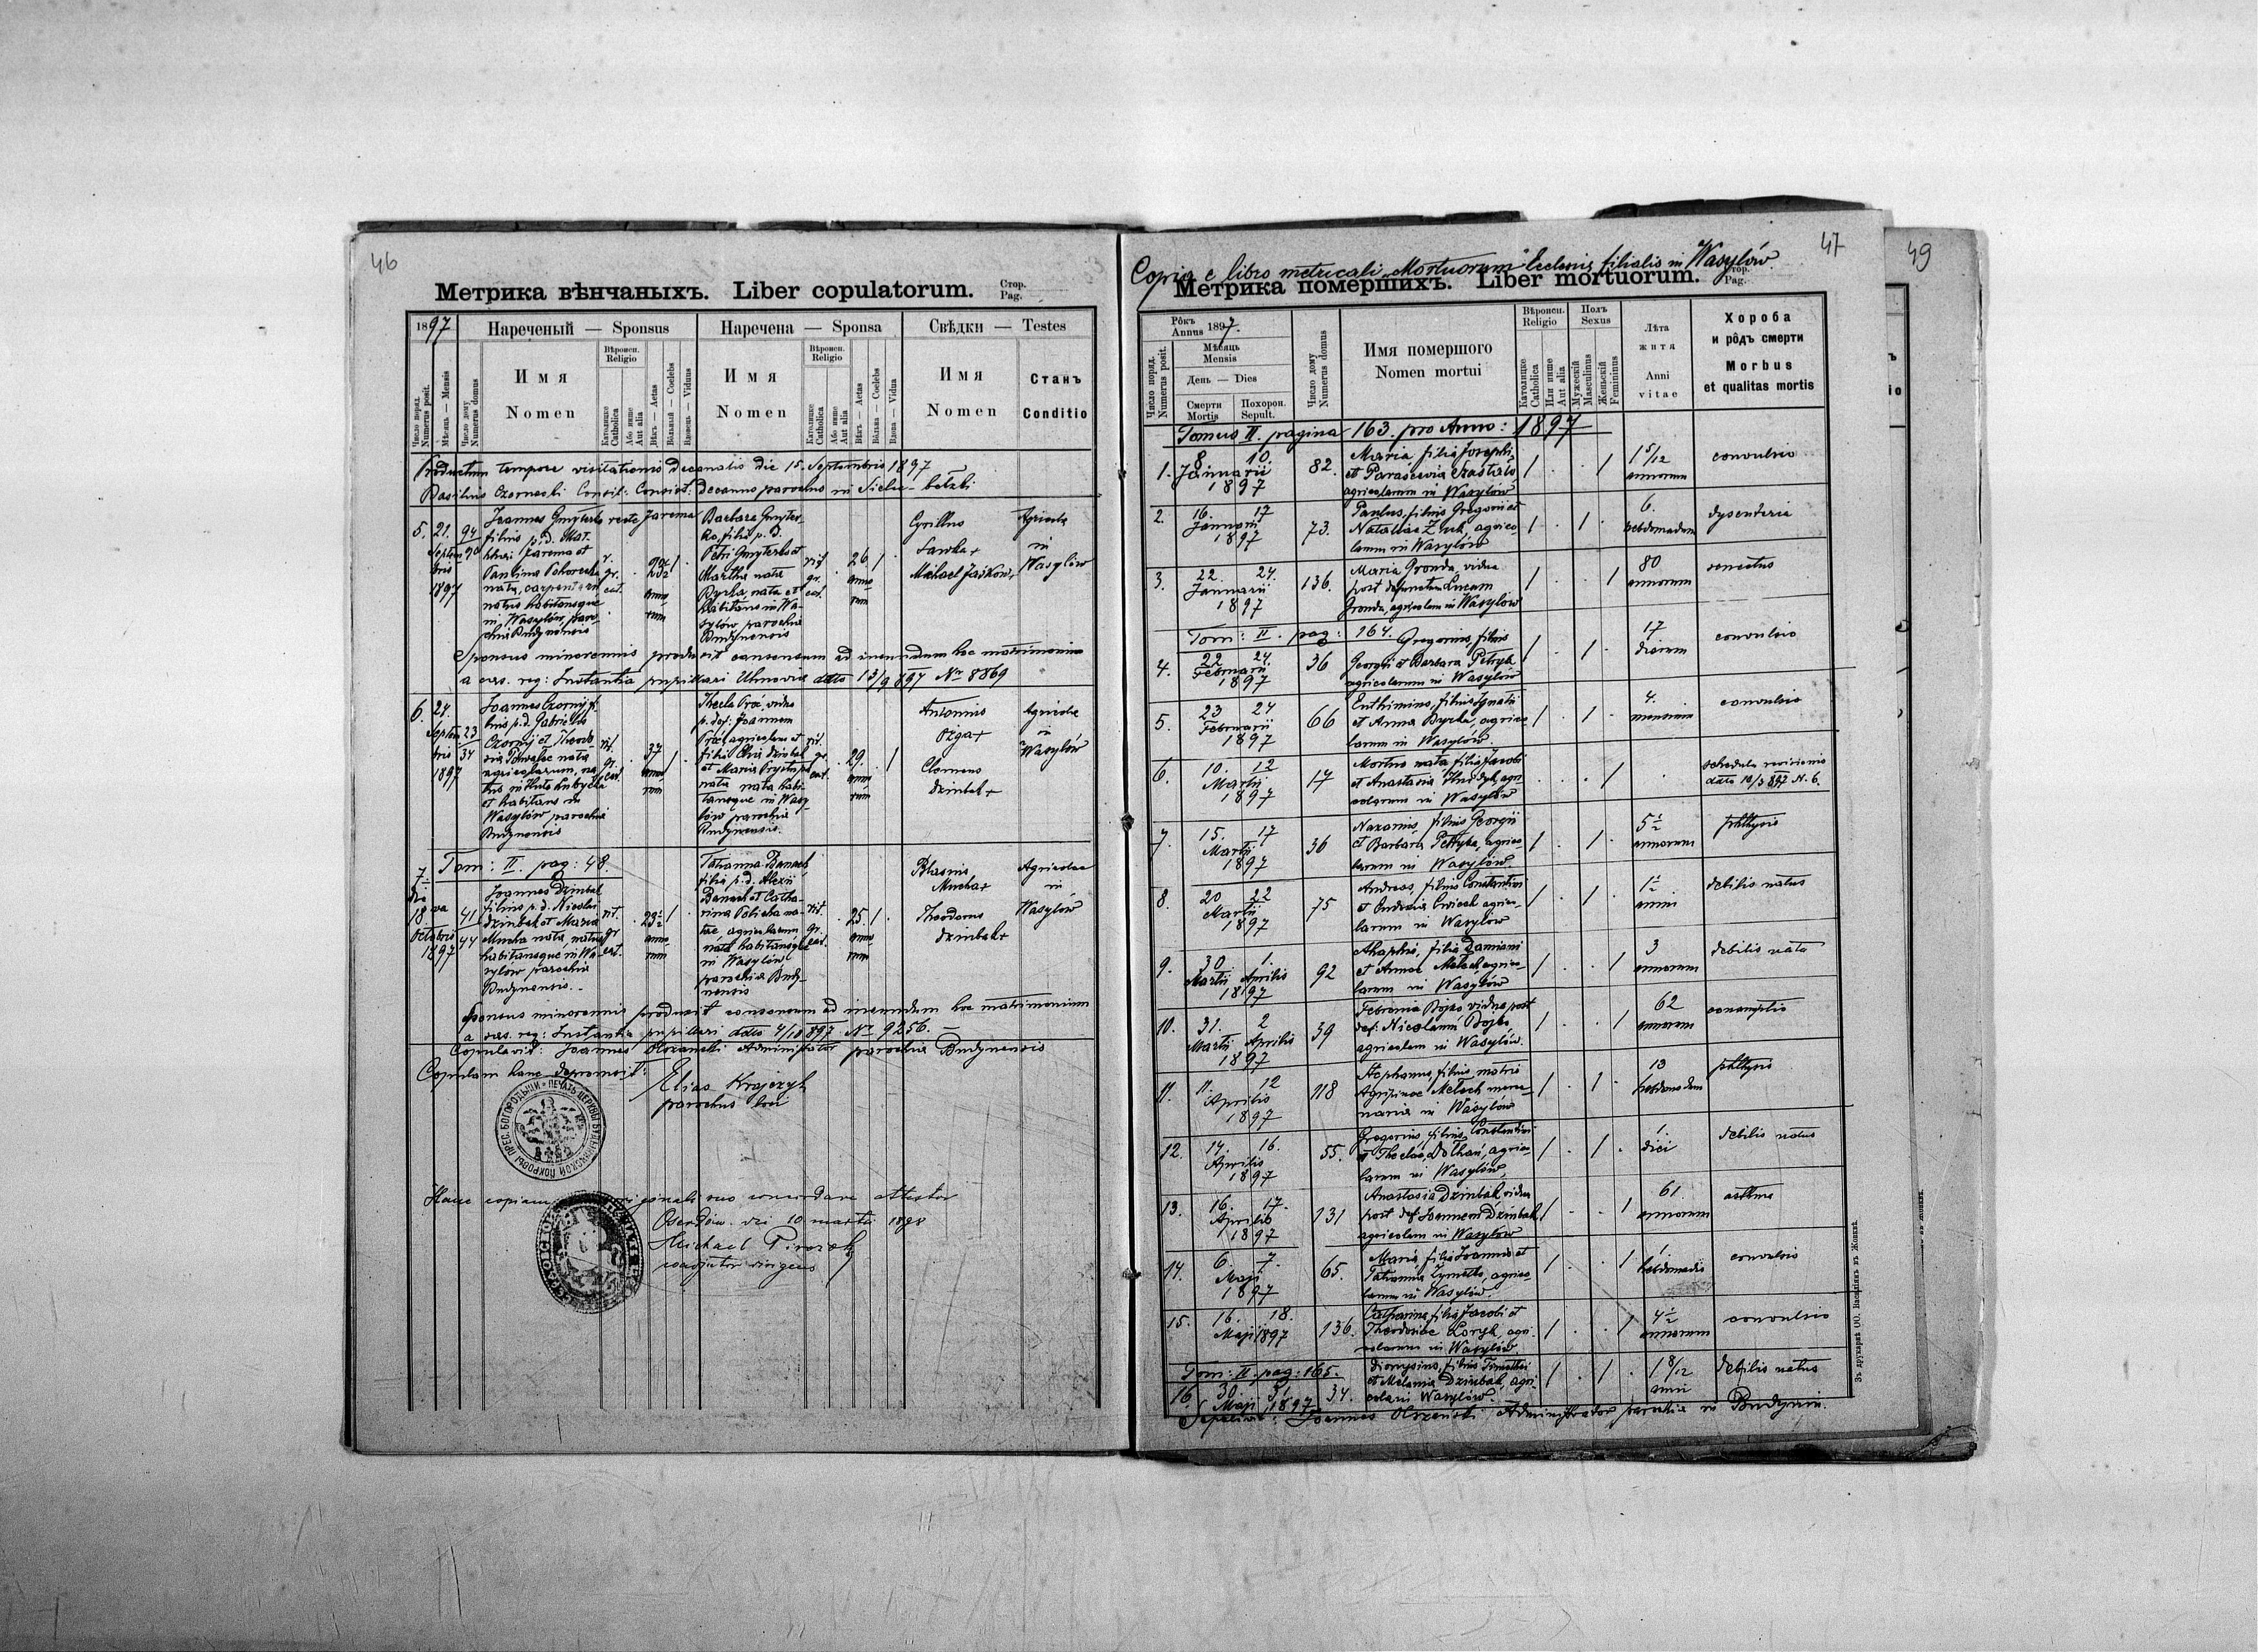 46
Метрика вѣнчаныхъ. Liber copulatorum. Стор. Pag.
1897
Нареченый — Sponsus
Наречена — Sponsa
Свѣдки — Testes
Число поряд. Numerus posit.
Мѣсяць — Mensis
Число дому Numerus domus
Имя Nomen
Вѣроисп. Religio
Католицке Catholica
Або инше Aut alia
Вѣкъ — Aetas
Вôльный — Coelebs
Вдовець — Viduus
Имя Nomen
Вѣроисп. Religio
Католицке Catholica
Або инше Aut alia
Вѣкъ — Aetas
Вôльна — Coelebs
Вдова — Vidua
Имя Nomen
Станъ Conditio
Productum tempore visitationis Decanalis die 15. Septembris 1897
Basilius Czernecki Consil: Consist: Decanus parochus in Sielec-bełzki
5. 21. Septembris 1897
94
Joannes Gmyterko recte Jarema
filius p. d. Mat-
thaei Jarema et
natus habitansque
in Wasylów, paro-
chia Budynensis
rit. gr. cat.
annorum
Barbara Gmyter-
ko, filia p. d.
Petri Gmyterko et
Martha nata
Byrka, nata et
habitans in Wa-
sylów parochia
Budynensis
rit. gr. cat.
26
annorum
Cyrillus
Sawka +
Michael Jaśkow +
Agricolae
in
Wasylów
Sponsus minorennis produxit consensum ad ineundum hoc matrimonium
a caes. reg: Instantia pupillari Uhnoviae ddto 13/9 897 Nr 8869
6. 24. Septembris 1897
23
34
Joannes Czornyj fi-
lius p. d. Gabrielis
Czornyj et Theodo-
agricolarum, na-
tus in Huta Lubycka
et habitans in
Wasylów parochia
Budynensis
rit. gr. cat.
37
annorum
Thecla Proć, vidua
p. def: Joannem
Proć, agricolam et
filia Eliae Dziubak
nata nata habi-
tansque in Wasy-
lów parochia
Budynensis
29.
annorum
Antonius
Ożga +
Clemens
Dziubak +
Agricolae
in
Wasylów
Tom: II. pag: 48.
7.
18 Octobris 1897
41
44
Joannes Dziubak
filius p. d. Nicolai
Dziubak et Maria
Mucha nata, natus
habitansque in Wa-
sylów parochia
Budynensis. -
rit. gr. cat.
23½
annorum
Tatianna Banach
filia p. d. Alexii
Banach et Catha-
rina Policha na-
tae agricolarum
nata habitansque
in Wasylów
parochia Budy-
nensis
rit. gr. cat.
25.
annorum
Blasius
Mucha +
Theodorus
Dziubak +
Agricolae
in
Wasylów
Sponsus minorennis produxit consensum ad ineundum hoc matrimonium
a caes. reg: Instantia pupillari ddto 4/10 897 Nr 9256. —
Copulavit: Joannes Olszański Administrator parochiae Budynensis
Copulam hanc depromsit:
Elias Krajczyk
parochus loci
Hanc copiam originali suo concordare attestor
10 martii 1898
Michael Pirożok
coadjutor
47
49
Copia e libro metricali "Mortuorum" Ecclesiae filialis in Wasylów.
Метрика помершихъ. Liber mortuorum. Стор. Pag.
Рôкъ Annus 1897.
Число поряд. Numerus posit.
Мѣсяць Mensis
День — Dies
Смерти Mortis
Похорон. Sepult.
Число дому Numerus domus
Имя помершого
Nomen mortui
Вѣроисп. Religio
Католицке Catholica
Или инше Aut alia
Полъ Sexus
Мужескій Masculinus
Женьскій Femininus
Лѣта житя
Anni vitae
Хороба
и рôдъ смерти
Morbus
et qualitas mortis
Tomus II. pagina 163. pro Anno: 1897
1. 8 10. Januarii 1897 82.
Maria filia Josephi
agricolarum in Wasylów
1 5/12 annorum
convulsio
2. 16. 17 Januarii 1897 73.
Paulus, filius Gregorii et
Nataliae Żuk, agrico-
larum in Wasylów
6. hebdomadum
dysenteria
3. 22. 24. Januarii 1897 136.
Maria Gronda, vidua
post defunctum Lucam
Gronda, agricolam in Wasylów
80 annorum
senectus
Tom: II. pag: 164.
4. 22 24. Februarii 1897 36
Gregorius, filius
Georgii et Barbara Petryk
agricolarum in Wasylów
17 dierum
convulsio
5. 23 24 Februarii 1897 66
Euthimius, filius Ignatii
et Anna Byrka, agrico-
larum in Wasylów.
4. mensium
convulsio
6. 10. 12 Martii 1897 17
Mortuo nata filia Jacobi
et Anastasia Hnidyk, agri-
colarum in Wasylów
schedula revisionis
ddto 10/3 897 N. 6.
7. 15. 17 Martii 1897 36
Nazarius, filius Georgii
et Barbara Petryka, agrico-
larum in Wasylów.
5½ annorum
phthysis
8. 20 22 Martii 1897 75
Andreas, filius Constantini
larum in Wasylów
1½ anni
debilis natus
9. 30. 1. Martii Aprilis 1897 92
Ahaphia, filia Damiani
et Annae Mełech, agrico-
larum in Wasylów
3 annorum
debilis nata
10. 31. 2 Martii Aprilis 1897 39
Febronia Bojko vidua post
def: Nicolaum Bojko,
agricolam in Wasylów.
62 annorum
consumptio
11. 11. 12 Aprilis 1897 118
Stephanus, filius, matris
Agripinae Mełech merce-
naria in Wasylów
13 hebdomadum
phthysis
12. 14. 16. Aprilis 1897 55.
Gregorius, filius Constantini
et Theclae Dołhań, agrico-
larum in Wasylów,
1. diei
debilis natus
13. 16. 17. Aprilis 1897 131
Anastasia Dziubak vidua
post def. Joannem Dziubak,
agricolam in Wasylów
61. annorum
asthma
14. 6. 7. Maji 1897 65.
Maria, filia Joannis et
larum in Wasylów.
1. hebdomadis
convulsio
15. 16. 18. Maji 1897 136.
Catharina, filia Jacobi et
Theodosiae Łoryk, agri-
colarum in Wasylów
4½ annorum
convulsio
Tom: II. pag: 165.
16. 30. 31. Maji 1897 34.
Dionysius, filius Timothei
et Melania Dziubak, agri-
colarum Wasylów.
1 8/12 anni
debilis natus
Sepelivit: Joannes Olszański Administrator parochiae in Budynin.
Зъ друкарнѣ ОО. Василіянъ въ Жовквѣ.